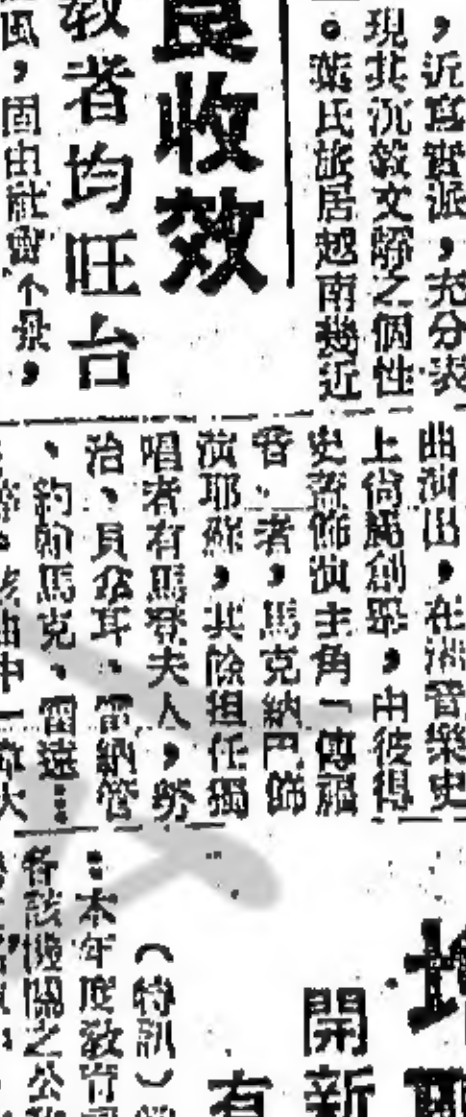 ，近寫實派，充分表
現其沉毅文靜之個性
。葉氏旅居越南幾近
良收效
教者均旺台
風，固由社會不景，
曲演出，在洲音樂史
上尙屬創舉，由彼得
史蓋飾演主角「傳福
音」者，馬克納門飾
演耶穌，其餘担任獨
唱者有馬登夫人，勞
治、貝企耳、雷納管
、約翰馬克、雷遠⋯
該曲中一
增
開新
有
（特訊）
：本年度敎育
各該機關之公